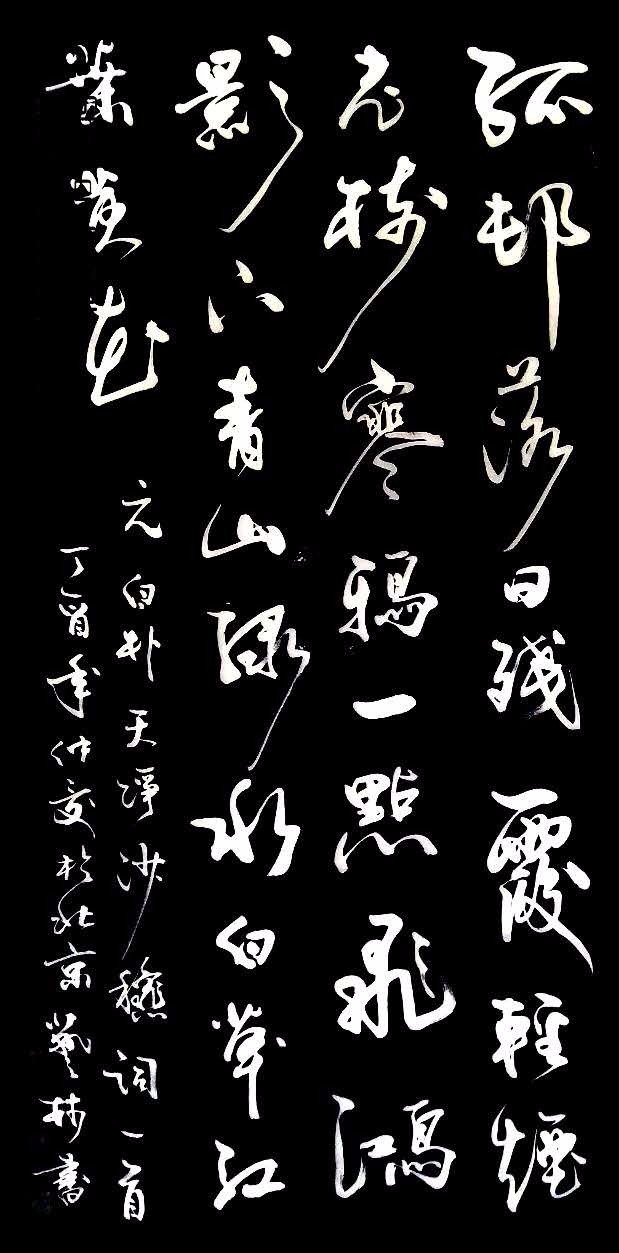 孤邨落日残霞輕煙
老樹寒鴉一點飛鴻
影下青山绿水白草红
葉黃花
元白朴天淨沙穐词一首
丁酉年仲夏於北京藝林書